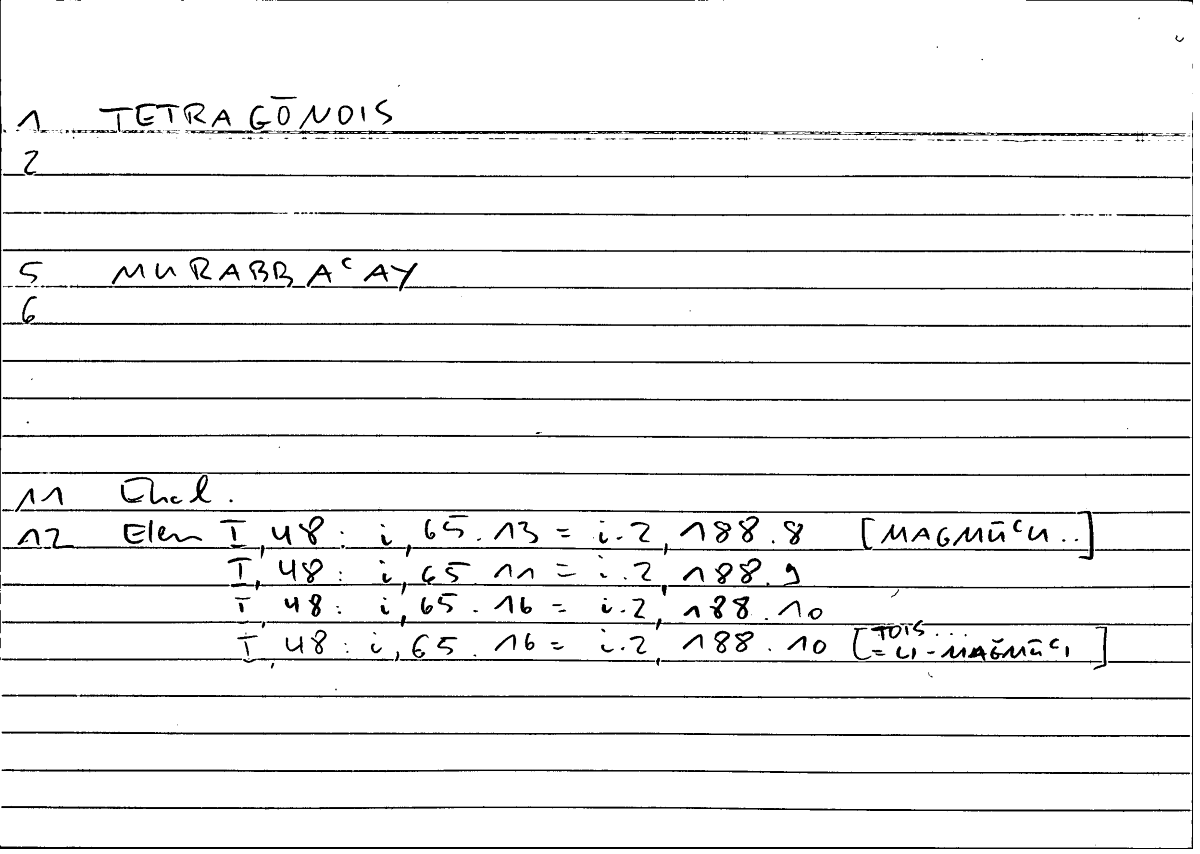 1 TETRAGŌNOIS
2
5 MURABBAᶜAY
6
11 Eucl.
12 Elem I, 48 : i, 65.13 = i.2, 188.8 [MAGMŪᶜU ..]
I, 48 : i, 65.11 = i.2, 188.9
I, 48 : i, 65.16 = i.2, 188.10
I, 48 : i, 65.16 = i.2, 188.10 [TOIS ... = LI-MAǦMŪᶜI ]